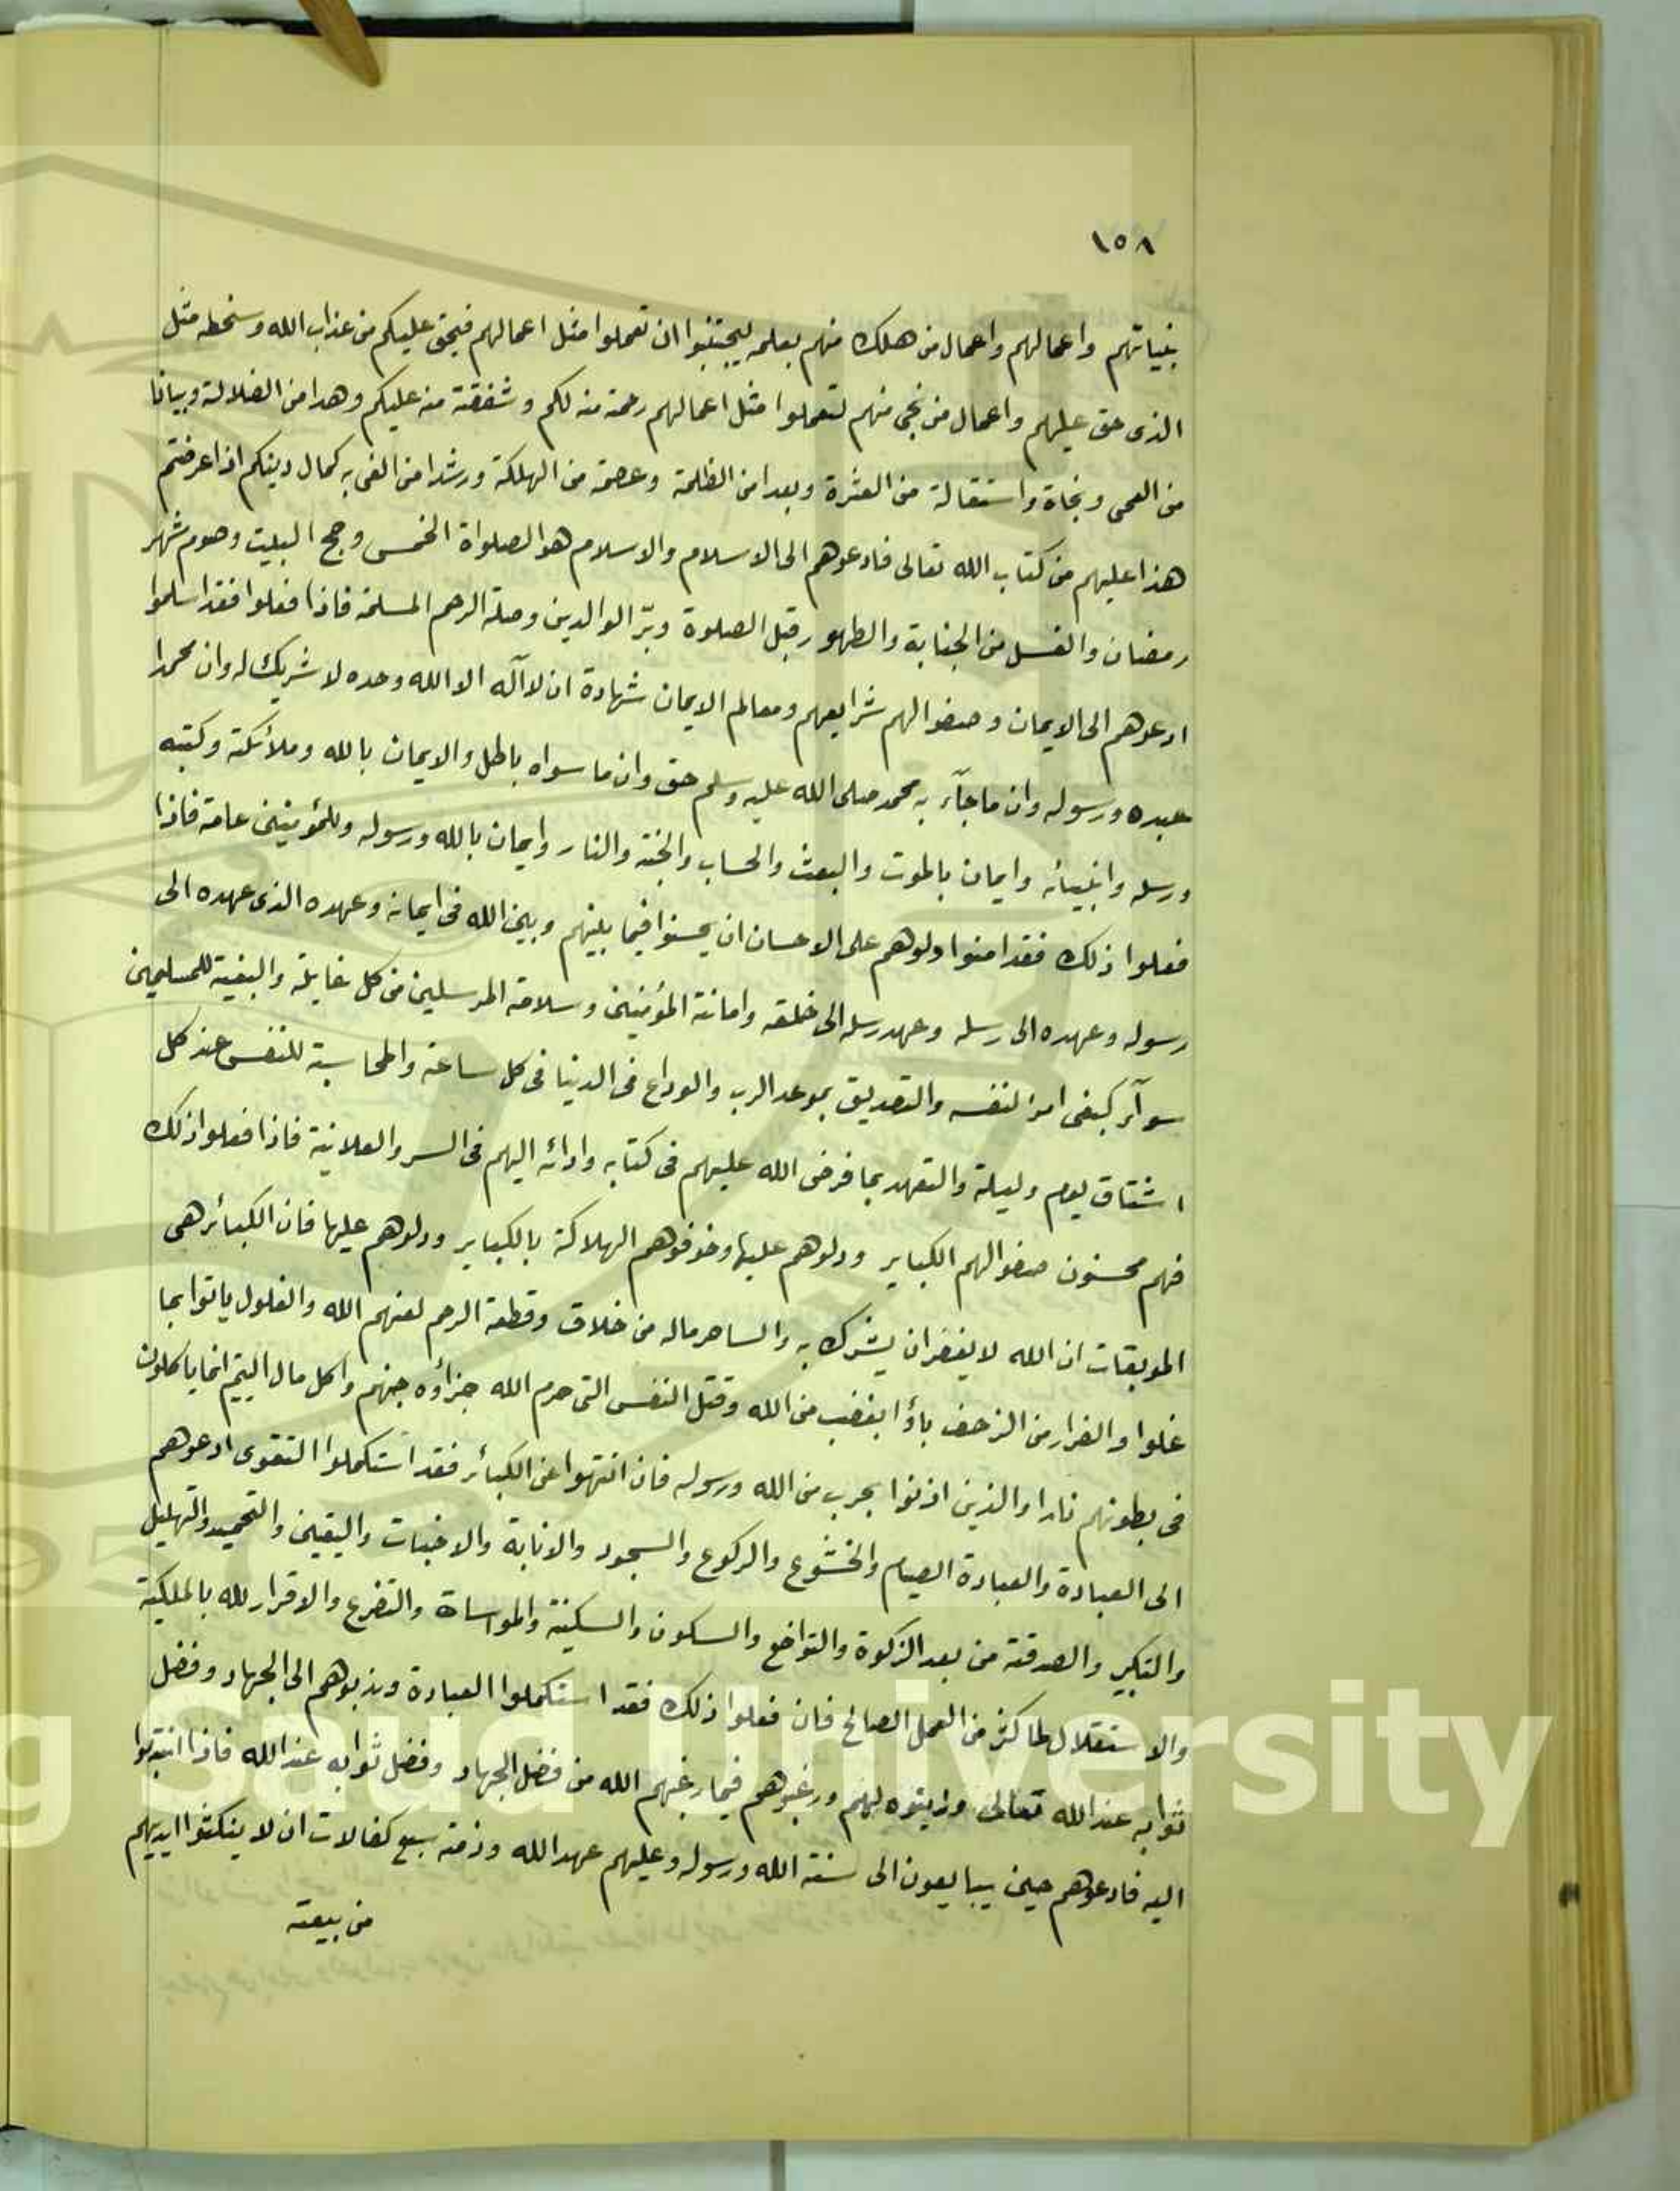 ١٥٨
بنياتهم واعمالهم واعمال من هلك منهم بعلمه ليجتنبوا ان تعملوا مثل اعمالهم فيحق عليكم من عذاب الله وسخطه مثل
الذى حق عليهم واعمال من نجى منهم لتعملوا مثل اعمالهم رحمة منه لكم وشفقة منه عليكم وهدا من الضلالة وبيانا
من العمى ونجاة واستقالة من العثرة وبعدا من الظلمة وعصمة من الهلكة ورشدا من الغى به كمال دينكم اذا عرضتم
هذا عليهم من كتاب الله تعالى فادعوهم الى الاسلام والاسلام هو الصلواة الخمس وحج البيت وصوم شهر
رمضان والغسل من الجنابة والطهور قبل الصلوة وبرّ الوالدين وصلة الرحم المسلمة فاذا فعلوا فقد اسلموا
ادعوهم الى الايمان وصفوا لهم شرايعهم ومعالم الايمان شهادة ان لاآله الا الله وحده لا شريك له وان محمدا
عبده ورسوله وان ماجآء به محمد صلى الله عليه وسلم حق وان ما سواه باطل والايمان بالله وملائكته وكتبه
ورسله وانبيائه وايمان بالموت والبعث والحساب والجنة والنار وايمان بالله ورسوله وللمؤمنين عامة فاذا
فعلوا ذلك فقد امنوا دلوهم على الاحسان ان يحسنوا فيما بينهم وبين الله فى ايمانه وعهده الذى عهده الى
رسوله وعهده الى رسله وعهد رسله الى خلقه وامانة المؤمنين وسلامة المرسلين من كل غايلة والبغية للمسلمين
سوآء كبغى امرء لنفسه والتصديق بموعد الرب والوداع فى الدنيا فى كل ساعة والمحاسبة للنفس عند كل
اشتاق يوم وليلة والتعهد بما فرض الله عليهم فى كتابه وادائه اليهم فى السر والعلانية فاذا فعلوا ذلك
فهم محسنون صفوا لهم الكباير ودلوهم عليها وخوفوهم الهلاكة بالكباير ودلوهم عليها فان الكبائر هى
الموبقات ان الله لا يغفر ان يشرك به والساحر ماله من خلاق وقطعة الرحم لعنهم الله والغلول ياتوا بما
غلوا والفرار من الزحف باؤا بغضب من الله وقتل النفس التى حرم الله جزاؤه جهنم واكل مال اليتيم انما ياكلون
فى بطونهم نارا والذين اذنوا بحرب من الله ورسوله فان انتهوا عن الكبائر فقد استكملوا التقوى ادعوهم
الى العبادة والعبادة الصيام والخشوع والركوع والسجود والانابة والاخبات واليقين والتحميد والتهليل
والتكبير والصدقة من بعد الزكوة والتواضع والسكون والسكينة والمواساة والتضرع والاقرار لله بالملكية
والاستقلال لما كثر من العمل الصالح فان فعلوا ذلك فقد استكملوا العبادة وندبوهم الى الجهاد وفضل
ثوابه عند الله تعالى وزينوه لهم ورغبوهم فيما رغبهم الله من فضل الجهاد وفضل ثوابه عند الله فاذا انتدبوا
اليه فادعوهم حين يبايعون الى سنة الله ورسوله وعليهم عهد الله وذمته سبع كفالات ان لا ينكثوا ايديهم
من بيعته
Saud University